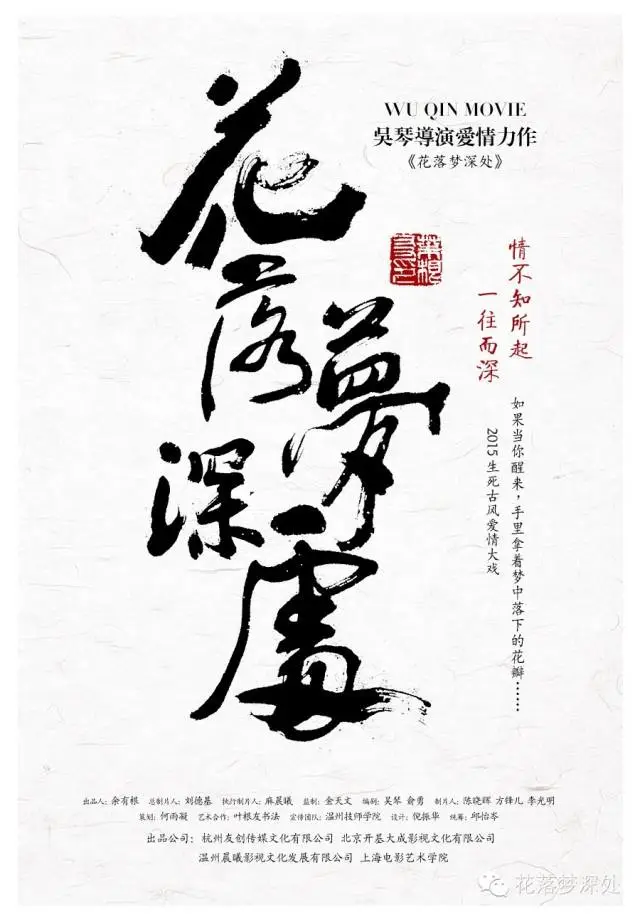 WU QIN MOVIE
吴琴導演愛情力作
《花落梦深处》
花落夢深處
情不知所起
一往而深
如果当你醒来，手里拿着梦中落下的花瓣……
2015生死古风爱情大戏
出品人：余有根 总制片人：刘德基 执行制片人：麻晨曦 监制：金天文 编剧：吴琴 俞勇 制片人：陈晓晖 方锋儿 李光明
策划：何雨凝 艺术合作：叶根友书法 宣传团队：温州技师学院 设计：倪振华 统筹：邱怡岑
出品公司：杭州友创传媒文化有限公司 北京开基大成影视文化有限公司
温州晨曦影视文化发展有限公司 上海电影艺术学院
花落梦深处